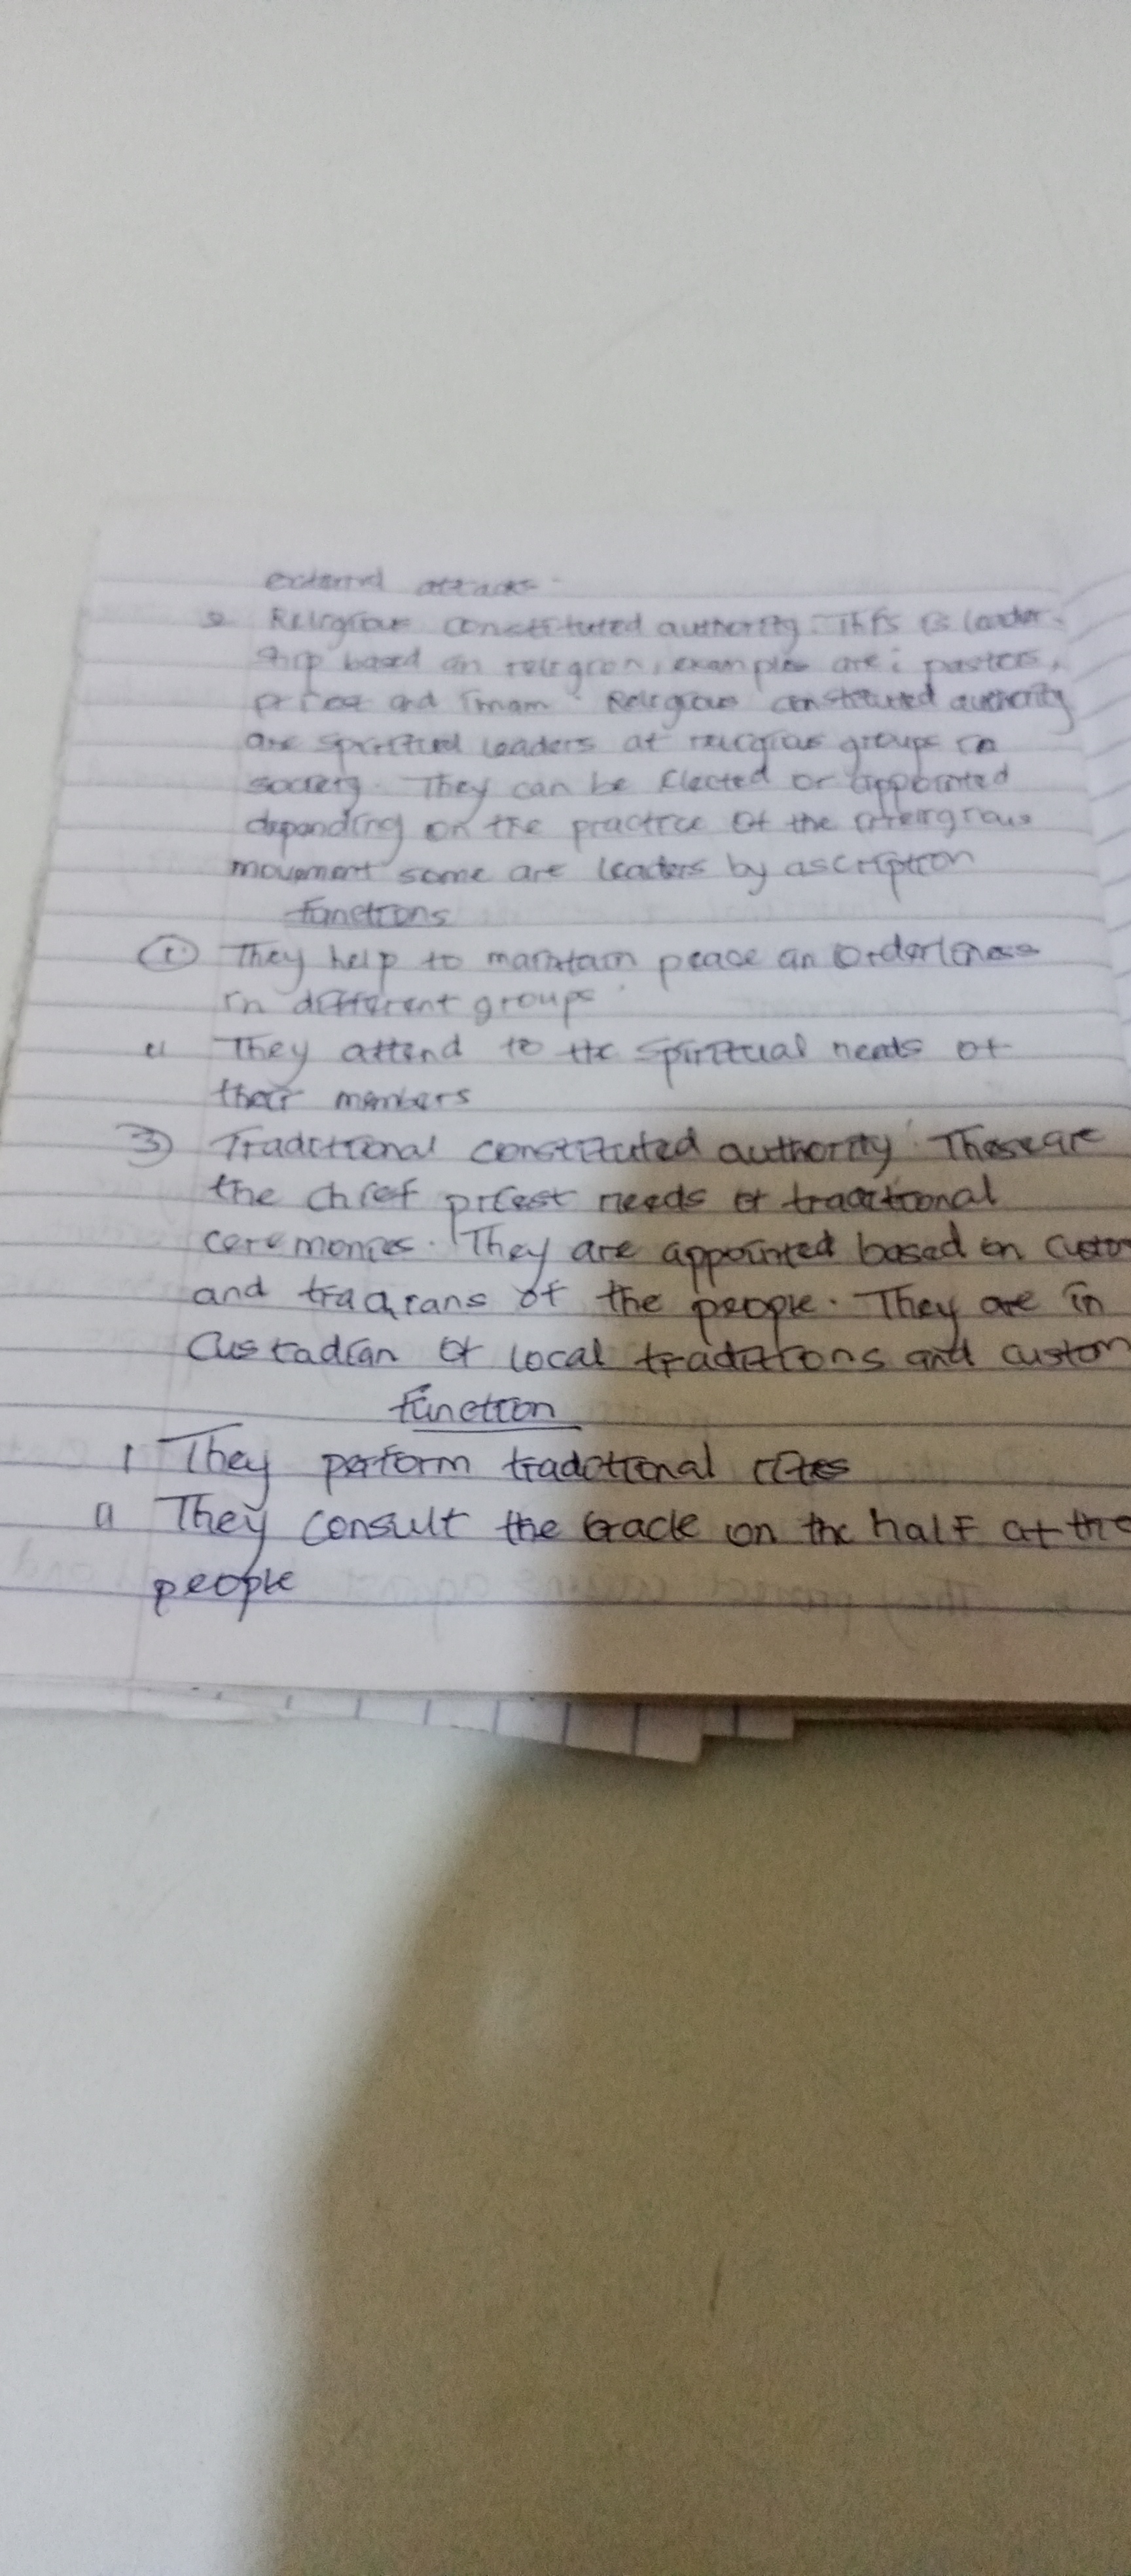 external attacks.
2 Religious constituted authority. This is leader-
ship based on religion, examples are: pastors,
priest and imam. Religious constituted authority
are spiritual leaders at religious groups in
society. They can be elected or appointed
depanding on the practice of the religious
movement some are leaders by ascription
functions
(i) They help to maintain peace an orderliness
in different groups.
ii They attend to the spiritual needs of
their members
3) Traditional constituted authority. These are
the chief priest needs of traditional
ceremonies. They are appointed based on custom
and of the people. They are in
Custadian of local traditions and custom
function
i They perform traditional rites
ii They consult the oracle on the half of the
people